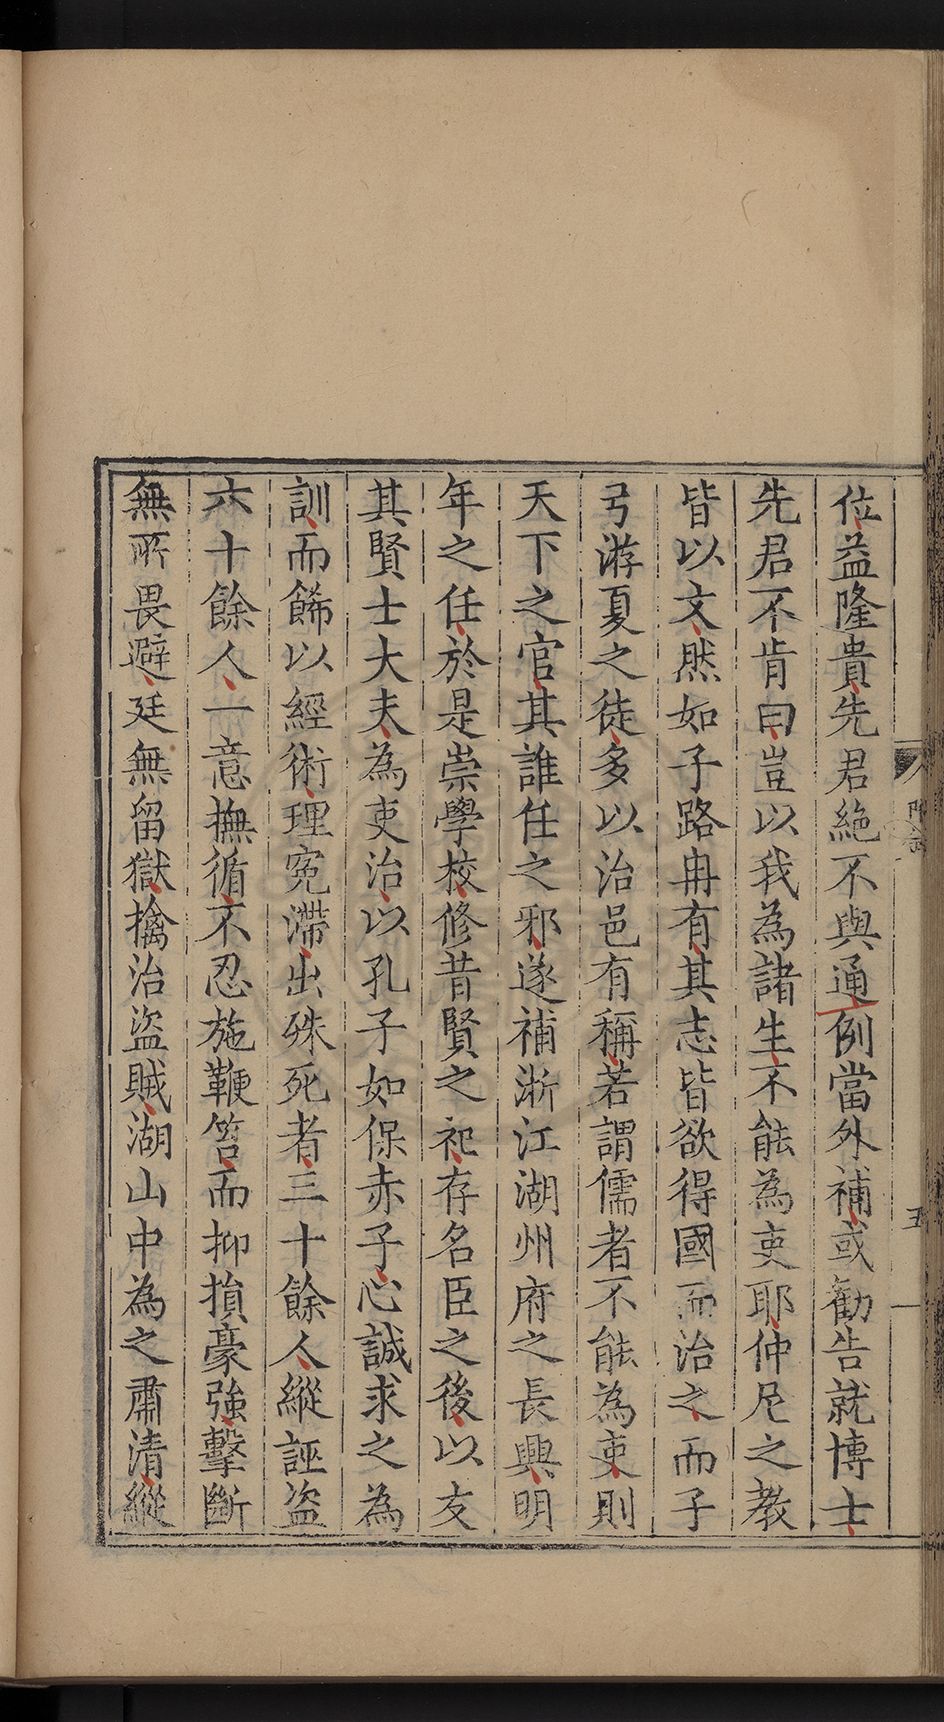 位益隆貴先君絶不與通例當外補或勸告就博士
先君不肯曰豈以我為諸生不能為吏耶仲尼之教
皆以文然如子路冉有其志皆欲得國而治之而子
弓游夏之徒多以治邑有稱若謂儒者不能為吏則
天下之官其誰任之邪遂補浙江湖州府之長興明
年之任於是崇學校修昔賢之祀存名臣之後以友
其賢士大夫為吏治以孔子如保赤子心誠求之為
訓而餙以經術理寃滯出殊死者三十餘人縱誣盜
六十餘人一意撫循不忍施鞭笞而抑損豪強擊斷
無所畏避廷無留獄擒治盜賊湖山中為之肅清縱
五